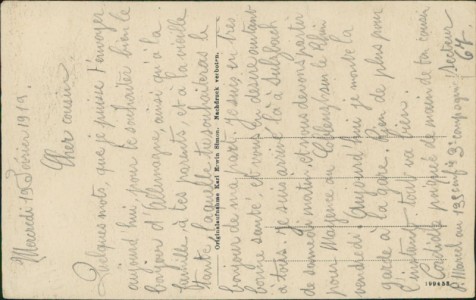 Mercredi 19 Février 1919.
Cher cousin
Quelques mots, que je puisse t'envoyer
aujourd'hui, pour te souhaiter bien le
bonjour d'Allemagne, ainsi qu'à la
famille, à tes parents, et à la vieille
tante, laquelle tu souhaiteras le
bonjour de ma part. Je suis en très
bonne santé et vous en désire autant
à tous. Je suis arrivé là à Sulzbach
de samedi matin, et nous devons partir
pour Mayence ou Coblengh sur le Rhin
vendredi. Aujourd'hui je monte la
garde à la gare. Rien de plus pour
l'instant tout va bien.
Cordiale poignée de main de ton cousin
Marcel au 19 3e compagnie Secteur
64
Originalaufnahme Karl Erwin Simon. Nachdruck verboten.